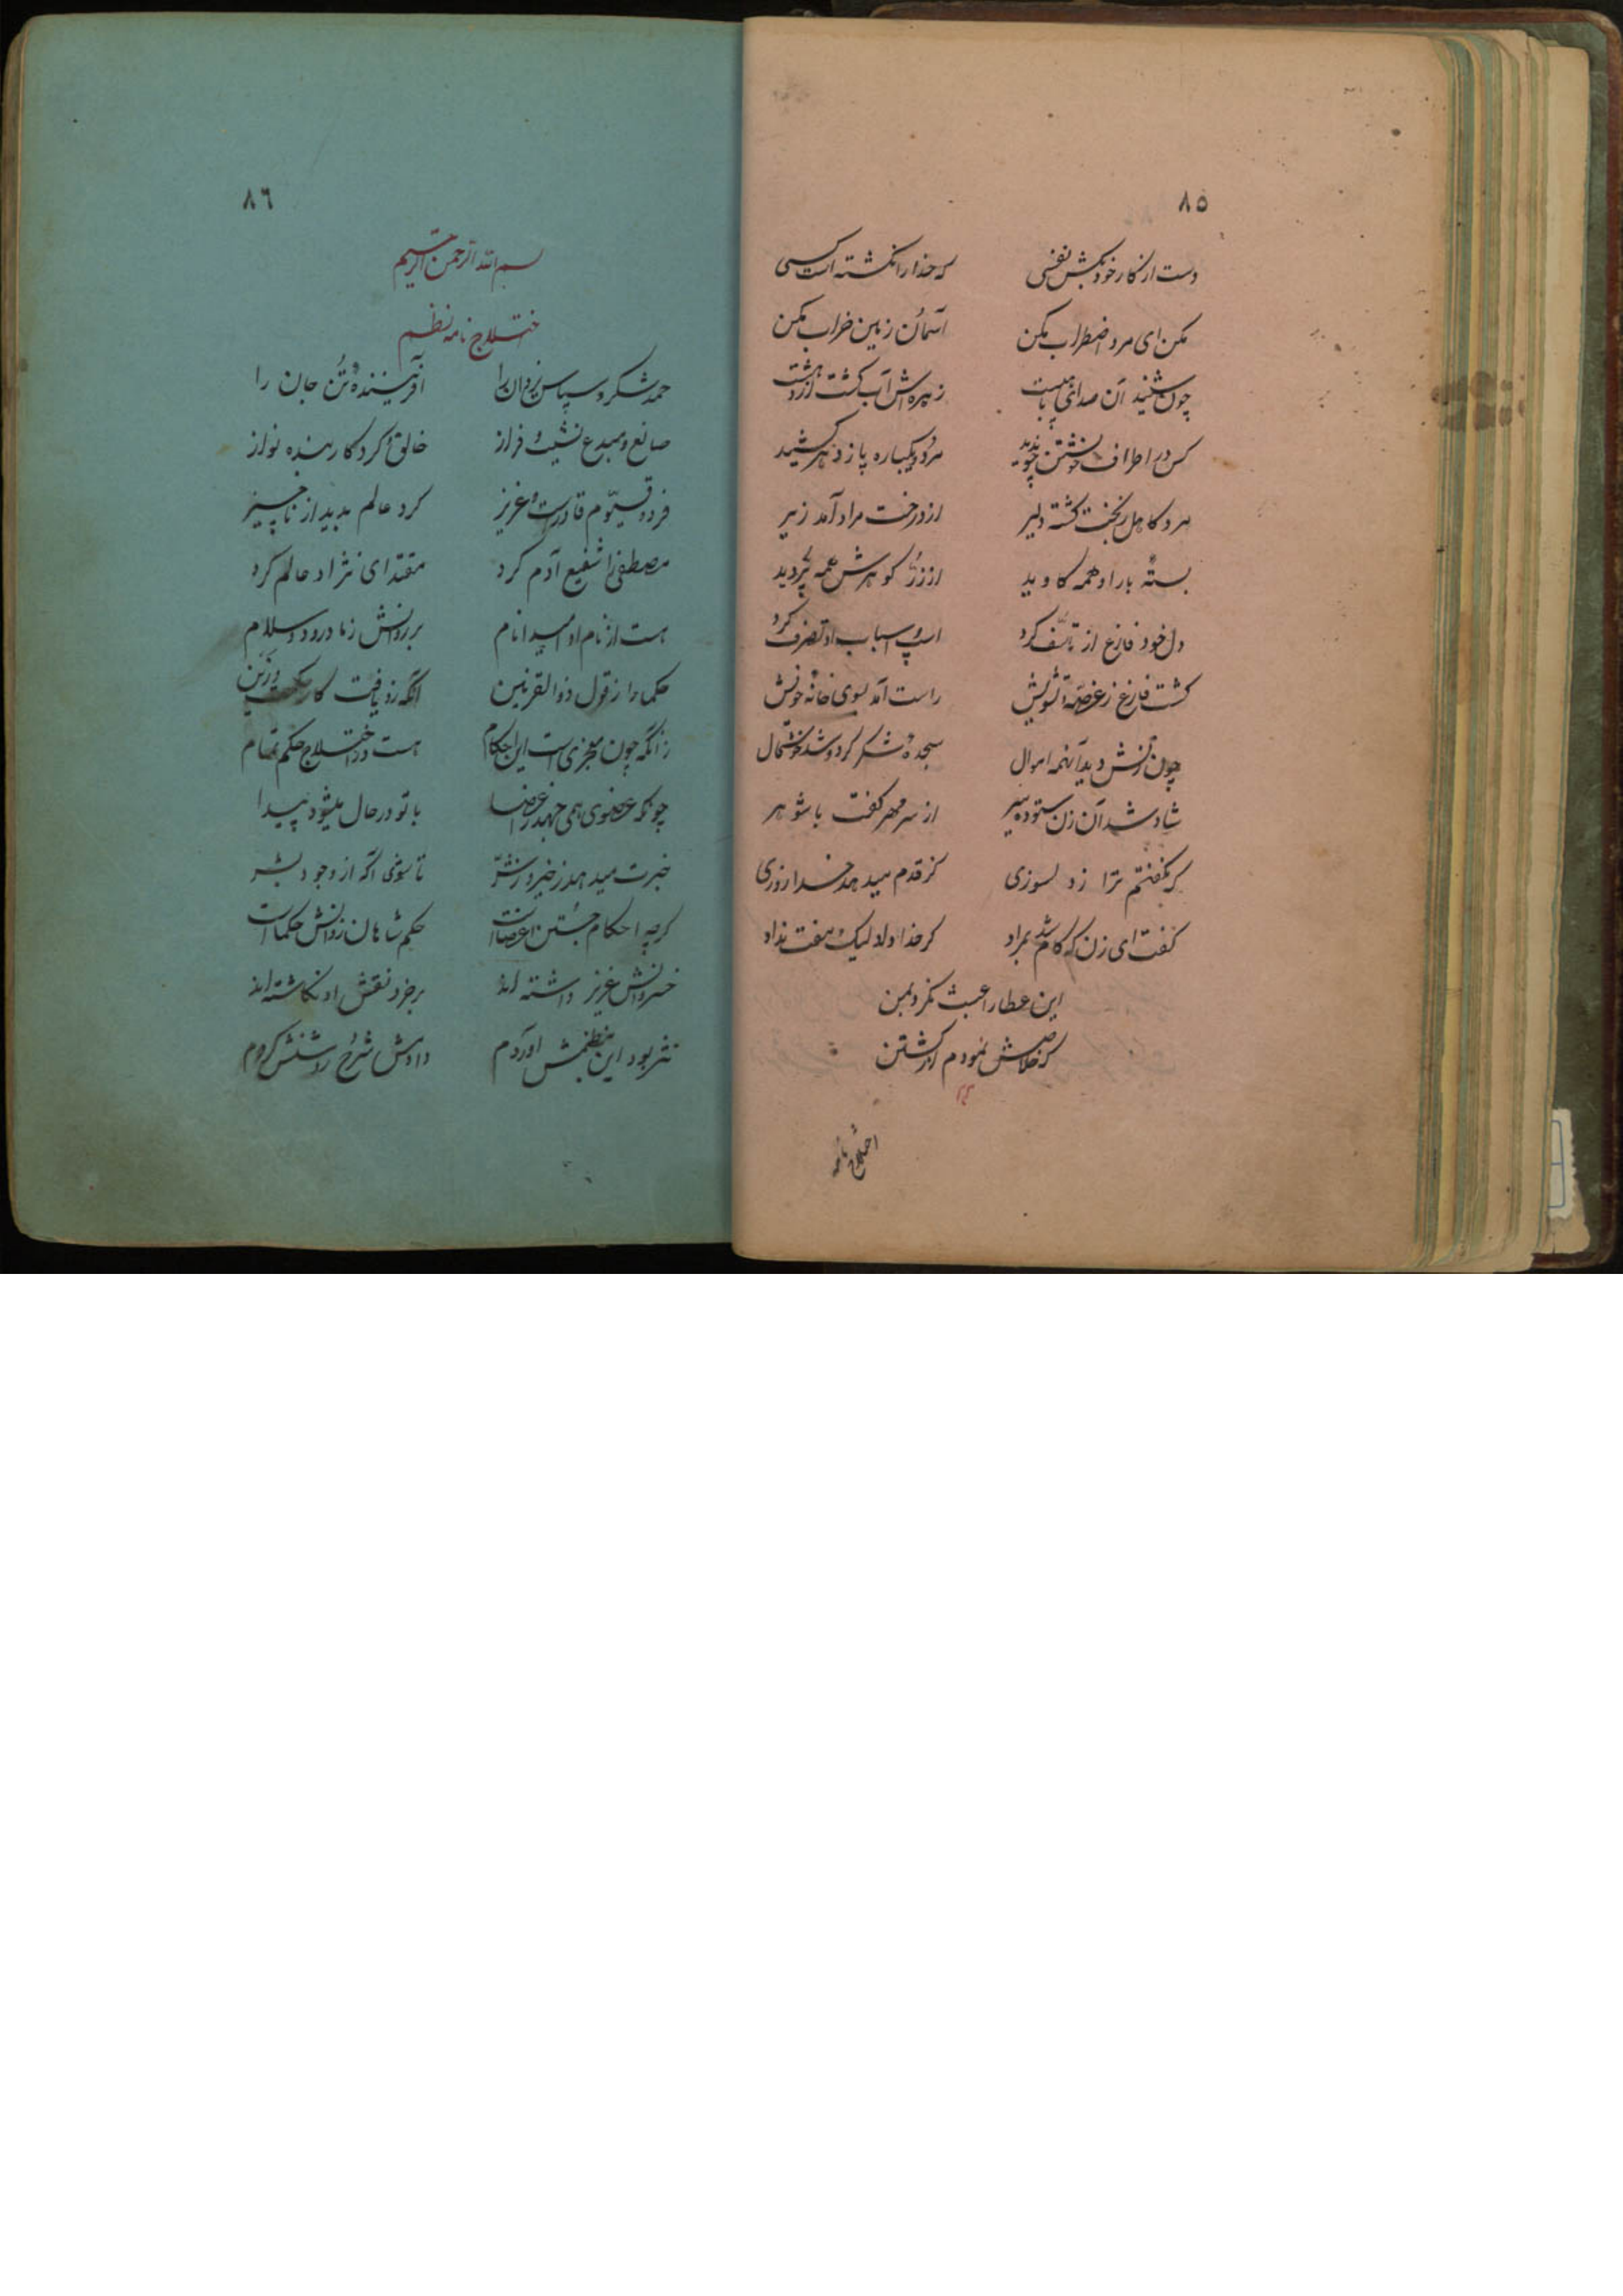 ٨٥
دست از کار خود بکش نفسی که خدا را نکشته است کسی
مکن ای مرد اضطراب مکن آسمان زمین خراب مکن
چون شنید آن صدای با هیبت زهره‌اش آب گشت از دهشت
کس در اطراف خویشتن چو ندید مرد و یکباره پا ز دهر کشید
مرد کاهل ز بخت گشته دلیر از درخت مراد آمد زیر
بستهٔ بار او همه کاوید از زر گوهرش همه پر دید
دل خود فارغ از تأسف کرد اسپ و اسباب او تصرف کرد
گشت فارغ ز غصه و تشویش راست آمد بسوی خانهٔ خویش
چون زنش دید آنهمه اموال سجدهٔ شکر کرد و شد خوشحال
شاد شد آن زن ستوده سیر از سر مهر گفت با شوهر
که نگفتم ترا ز دلسوزی کز قدم میدهد خدا روزی
گفت ای زن که کام شد بمراد گر خدا داد لیک مفت نداد
این عطا را عبث نکرد بمن
که خلاصش نمودم از کشتن
اختلاج نامه
٨٦
بسم الله الرحمن الرحیم
اختلاج نامه نظم
حمد شکر و سپاس یزدان را آفرینندهٔ تن جان را
صانع و مبدع نشیب و فراز خالق و کردگار بنده نواز
فرد و قیّوم قادرست و عزیز کرد عالم پدید از ناچیز
مصطفی را شفیع آدم کرد مقتدای نژاد عالم کرد
هست از نام او امید انام بر روانش ز ما درود و سلام
حکما را ز قول ذوالقرنین آنکه زو یافت کار حکمت وزین
زانکه چون معجزی است این احکام هست در اختلاج حکم تمام
چونکه عضوی همی جهد ز اعضا با تو در حال میشود پیدا
خبرت میدهد ز خیر و ز شرّ تا شوی آگه از وجود بشر
گرچه احکام جستن اعضاست حکم شاهان ز دانش حکماست
خسروانش عزیز داشته اند بر خرد نقش او نگاشته اند
نثر بود این بنظمش آوردم دادمش شرح روشنش کردم